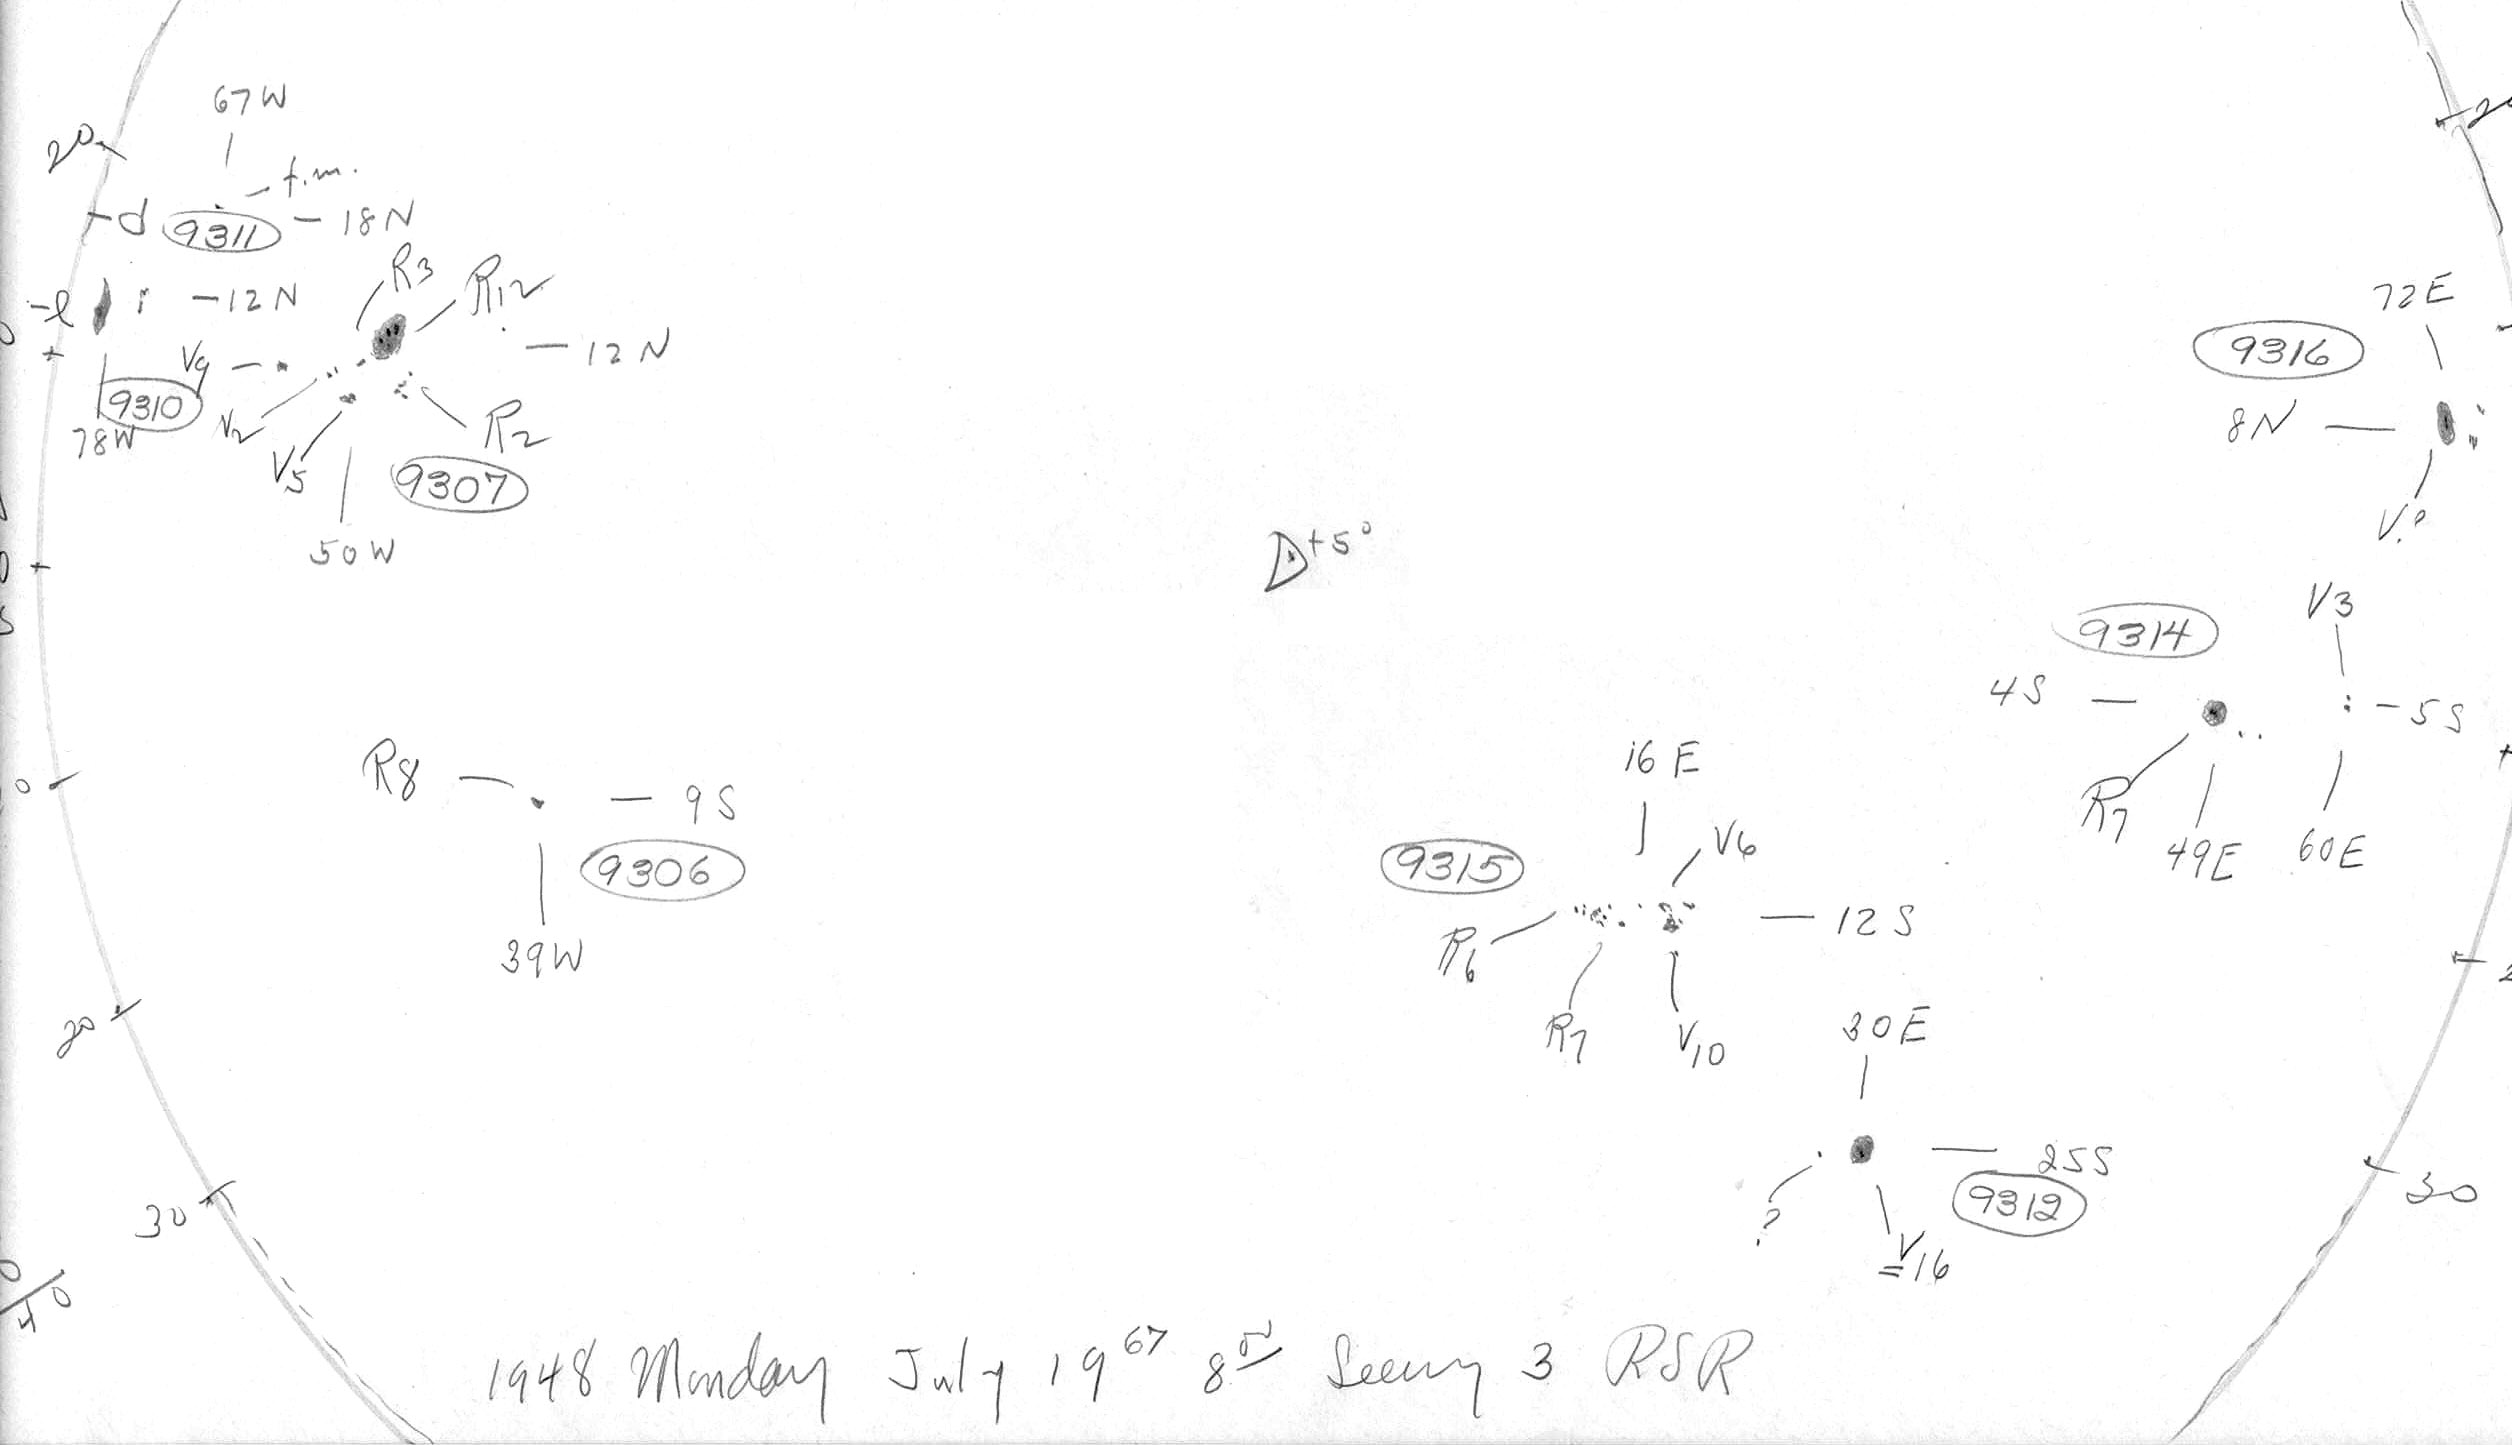 67W
20
20
f.m.
d 9311 - 18N
R3
R12
l
- 12N
72E
9316
- 12N
V9
9310
V2
R2
8N
78W
V5
9307
V?
50W
+5°
V3
9314
4S
- 5S
R8
- 9S
16E
R7
V6
9306
9315
49E
60E
39W
R6
- 12S
R7
V10
20
30E
25S
30
9312
30
?
V
=16
40
1948 Monday July 19 67 8 Seeing 3 RSR